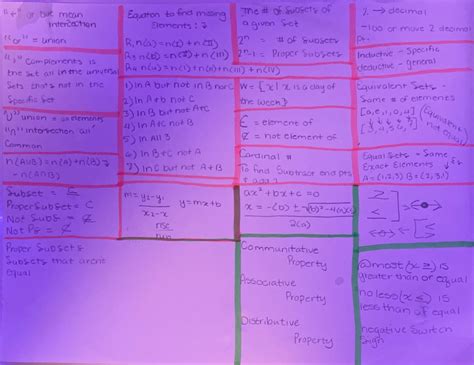 "+" or but mean
intercection
"or" = union
"'" Complements is
the set all in the universal
Sets that's not in the
Specific Set
"U" union = all elements
"∩" intersection all
Common
n(AUB)=n(A)+n(B)-
- n(A∩B)
Subset = ⊆
Proper Subset = C
Not Subs = ⊄
Not Ps = ⊄
Proper Subsets
Subsets that aren't
equal
Equation to find missing
Elements: S
1) In A but not B nor C
2) In A + B not C
3) In B but not A+C
4) In A+C not B
5) In All Three
6) In B+C not A
7) In C but not A + B
m = y₂-y₁
x₂-x₁
rise
run
y=mx+b
The # of Subsets of
a given Set
2ⁿ = # of Subsets
2ⁿ-1 = Proper Subsets
W = {x | x is a day of
the week}
∈ = element of
∉ = not element of
Cardinal #
To find Subtract end pts
ax²+bx+c=0
x = -(b) ± √(b)²-4(a)(c)
2(a)
Communitative
Property
Associative
Property
Distributive
Property
% → decimal
÷100 or move 2 decimal
Inductive - Specific
deductive - general
Equivalent Sets -
Same # of elements
Equal Sets = Same
Exact Elements
A = (1,2,3) B = {2,1,3}
@most (x ≥) is
greater than or equal
no less (x ≤) is
less than or equal
negative Switch
Sign